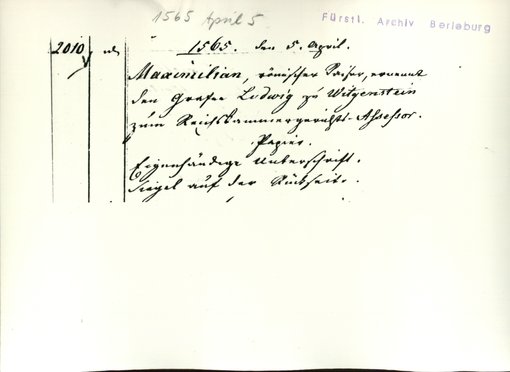 1565 April 5
Fürstl. Archiv Berleburg
2010
1565. den 5. April.
Maximilian, römischer Kaiser, ernennt
den Grafen Ludwig zu Witgenstein
zum Reichskammergerichts-Assessor.
Papier.
Eigenhändige Unterschrift.
Siegel auf der Rückseite.